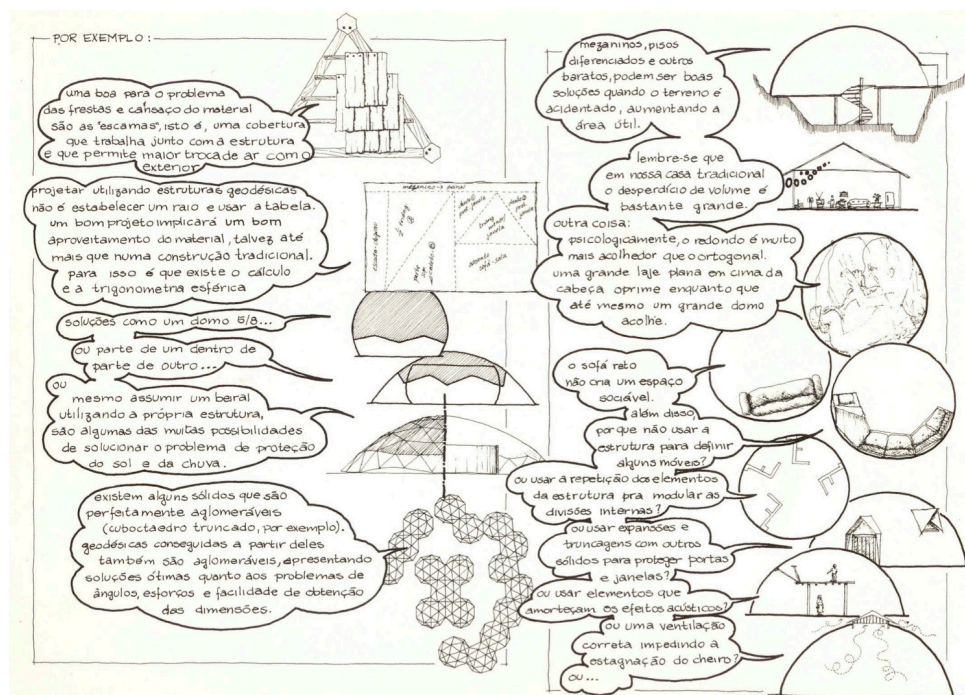 POR EXEMPLO:
uma boa para o problema
das frestas e cansaço do material
são as "escamas", isto é, uma cobertura
que trabalha junto com a estrutura
e que permite maior troca de ar com o
exterior
projetar utilizando estruturas geodésicas
não é estabelecer um raio e usar a tabela.
um bom projeto implicará um bom
aproveitamento do material, talvez até
mais que numa construção tradicional.
para isso é que existe o cálculo
e a trigonometria esférica
soluções como um domo 5/8...
ou parte de um dentro de
parte de outro...
ou
mesmo assumir um beiral
utilizando a própria estrutura,
são algumas das muitas possibilidades
de solucionar o problema de proteção
do sol e da chuva.
existem alguns sólidos que são
perfeitamente aglomeráveis
(cuboctaedro truncado, por exemplo).
geodésicas conseguidas a partir deles
também são aglomeráveis, apresentando
soluções ótimas quanto aos problemas de
ângulos, esforços e facilidade de obtenção
das dimensões.
mezaninos, pisos
diferenciados e outros
baratos, podem ser boas
soluções quando o terreno é
acidentado, aumentando a
área útil.
lembre-se que
em nossa casa tradicional
o desperdício de volume é
bastante grande.
outra coisa:
psicologicamente, o redondo é muito
mais acolhedor que o ortogonal.
uma grande laje plana em cima da
cabeça oprime enquanto que
até mesmo um grande domo
acolhe.
o sofá reto
não cria um espaço
sociável.
além disso,
por que não usar a
estrutura para definir
alguns móveis?
ou usar a repetição dos elementos
da estrutura pra modular as
divisões internas?
ou usar expansões e
truncagens com outros
sólidos para proteger portas
e janelas?
ou usar elementos que
amorteçam os efeitos acústicos?
ou uma ventilação
correta impedindo a
estagnação do cheiro?
ou...